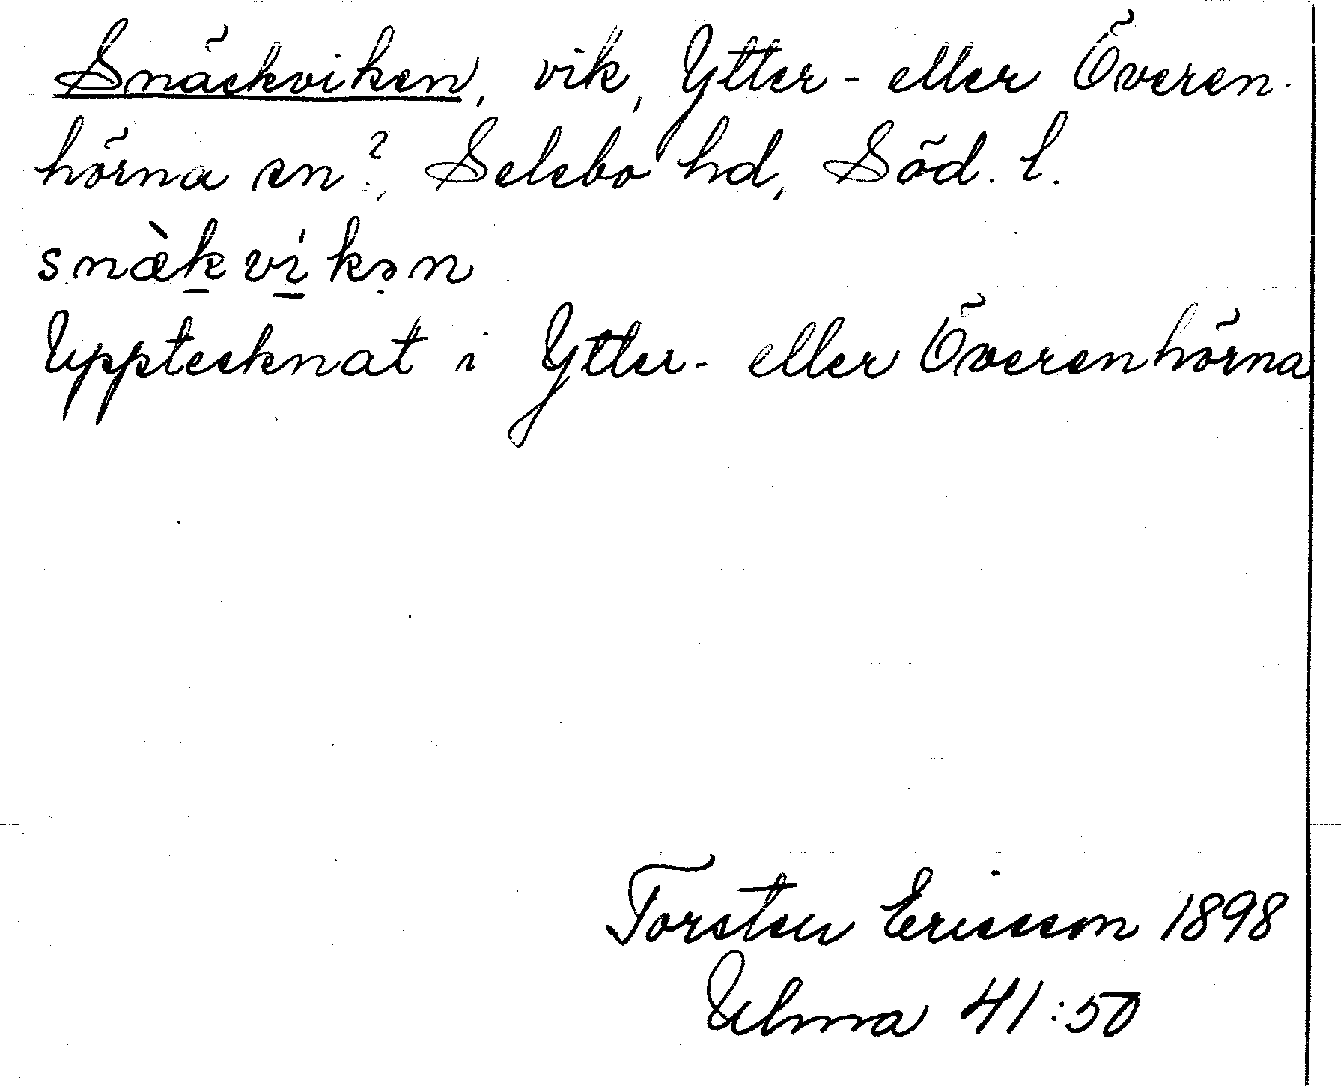 Snäckviken, vik, Ytter- eller Överen-
hörna sn?, Selebo hd, Söd. l.
snæ̀kvi̍kən
Upptecknat i Ytter- eller Överenhörna
Torsten Ericsson 1898
Ulma 41:50